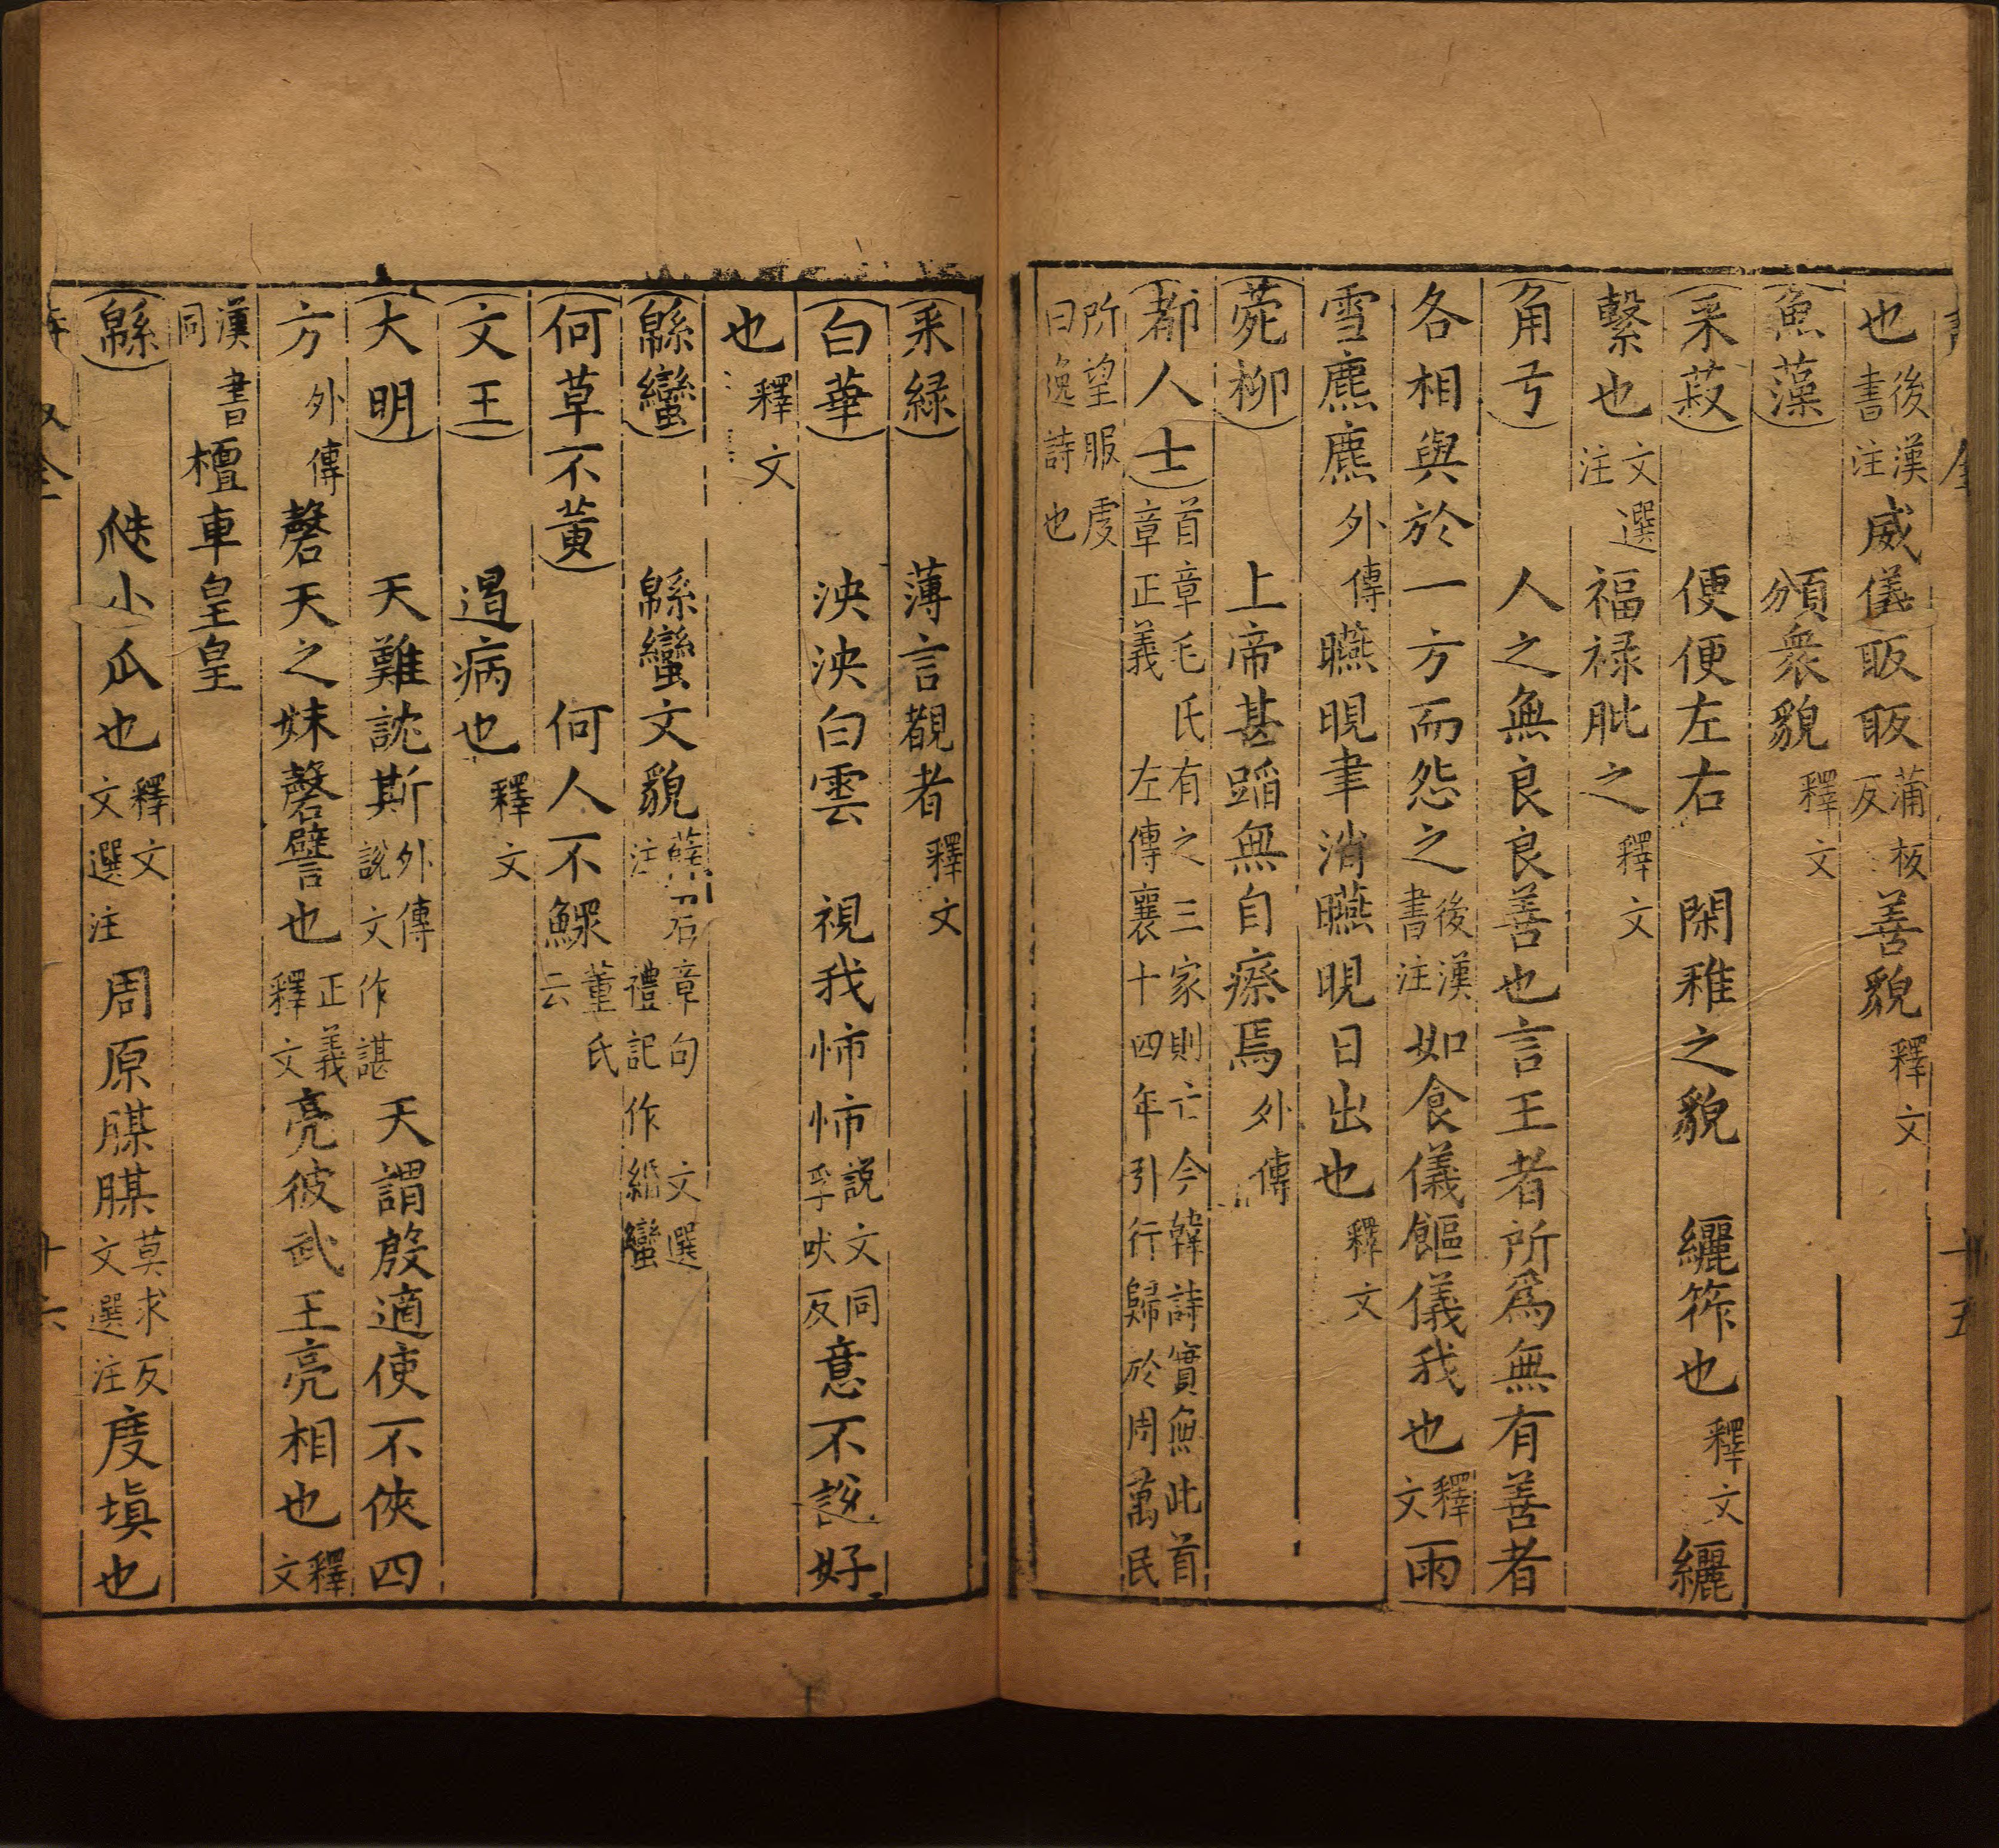 也後漢書注威儀昄昄蒲板反善貌釋文
魚藻　頒衆貌釋文
采菽　便便左右　閑稚之貌　纚筰也釋文纚
繫也文選注福祿肶之釋文
角弓　人之無良良善也言王者所爲無有善者
各相與於一方而怨之後漢書注如食儀饇儀我也釋文雨
雪麃麃外傳曣晛聿消曣晛日出也釋文
菀柳　上帝甚蹈無自瘵焉外傳
都人士首章毛氏有之三家則亡今韓詩實無此首章正義　左傳襄十四年引行歸於周萬民
所望服虔曰逸詩也
采綠　薄言覩者釋文
白華　泱泱白雲　視我怖怖說文同孚吠反意不說好
也釋文
緜蠻　緜蠻文貌章句文選注　禮記作緡蠻
何草不黃　何人不鰥董氏云
文王　遏病也釋文
大明　天難訦斯外傳說文作諶　天謂殷適使不俠四
方外傳磬天之妹磬譬也正義釋文亮彼武王亮相也釋文
漢書同檀車皇皇
緜　瓞小瓜也釋文文選注　周原腜腜莫求反文選注度塡也
十五
十六